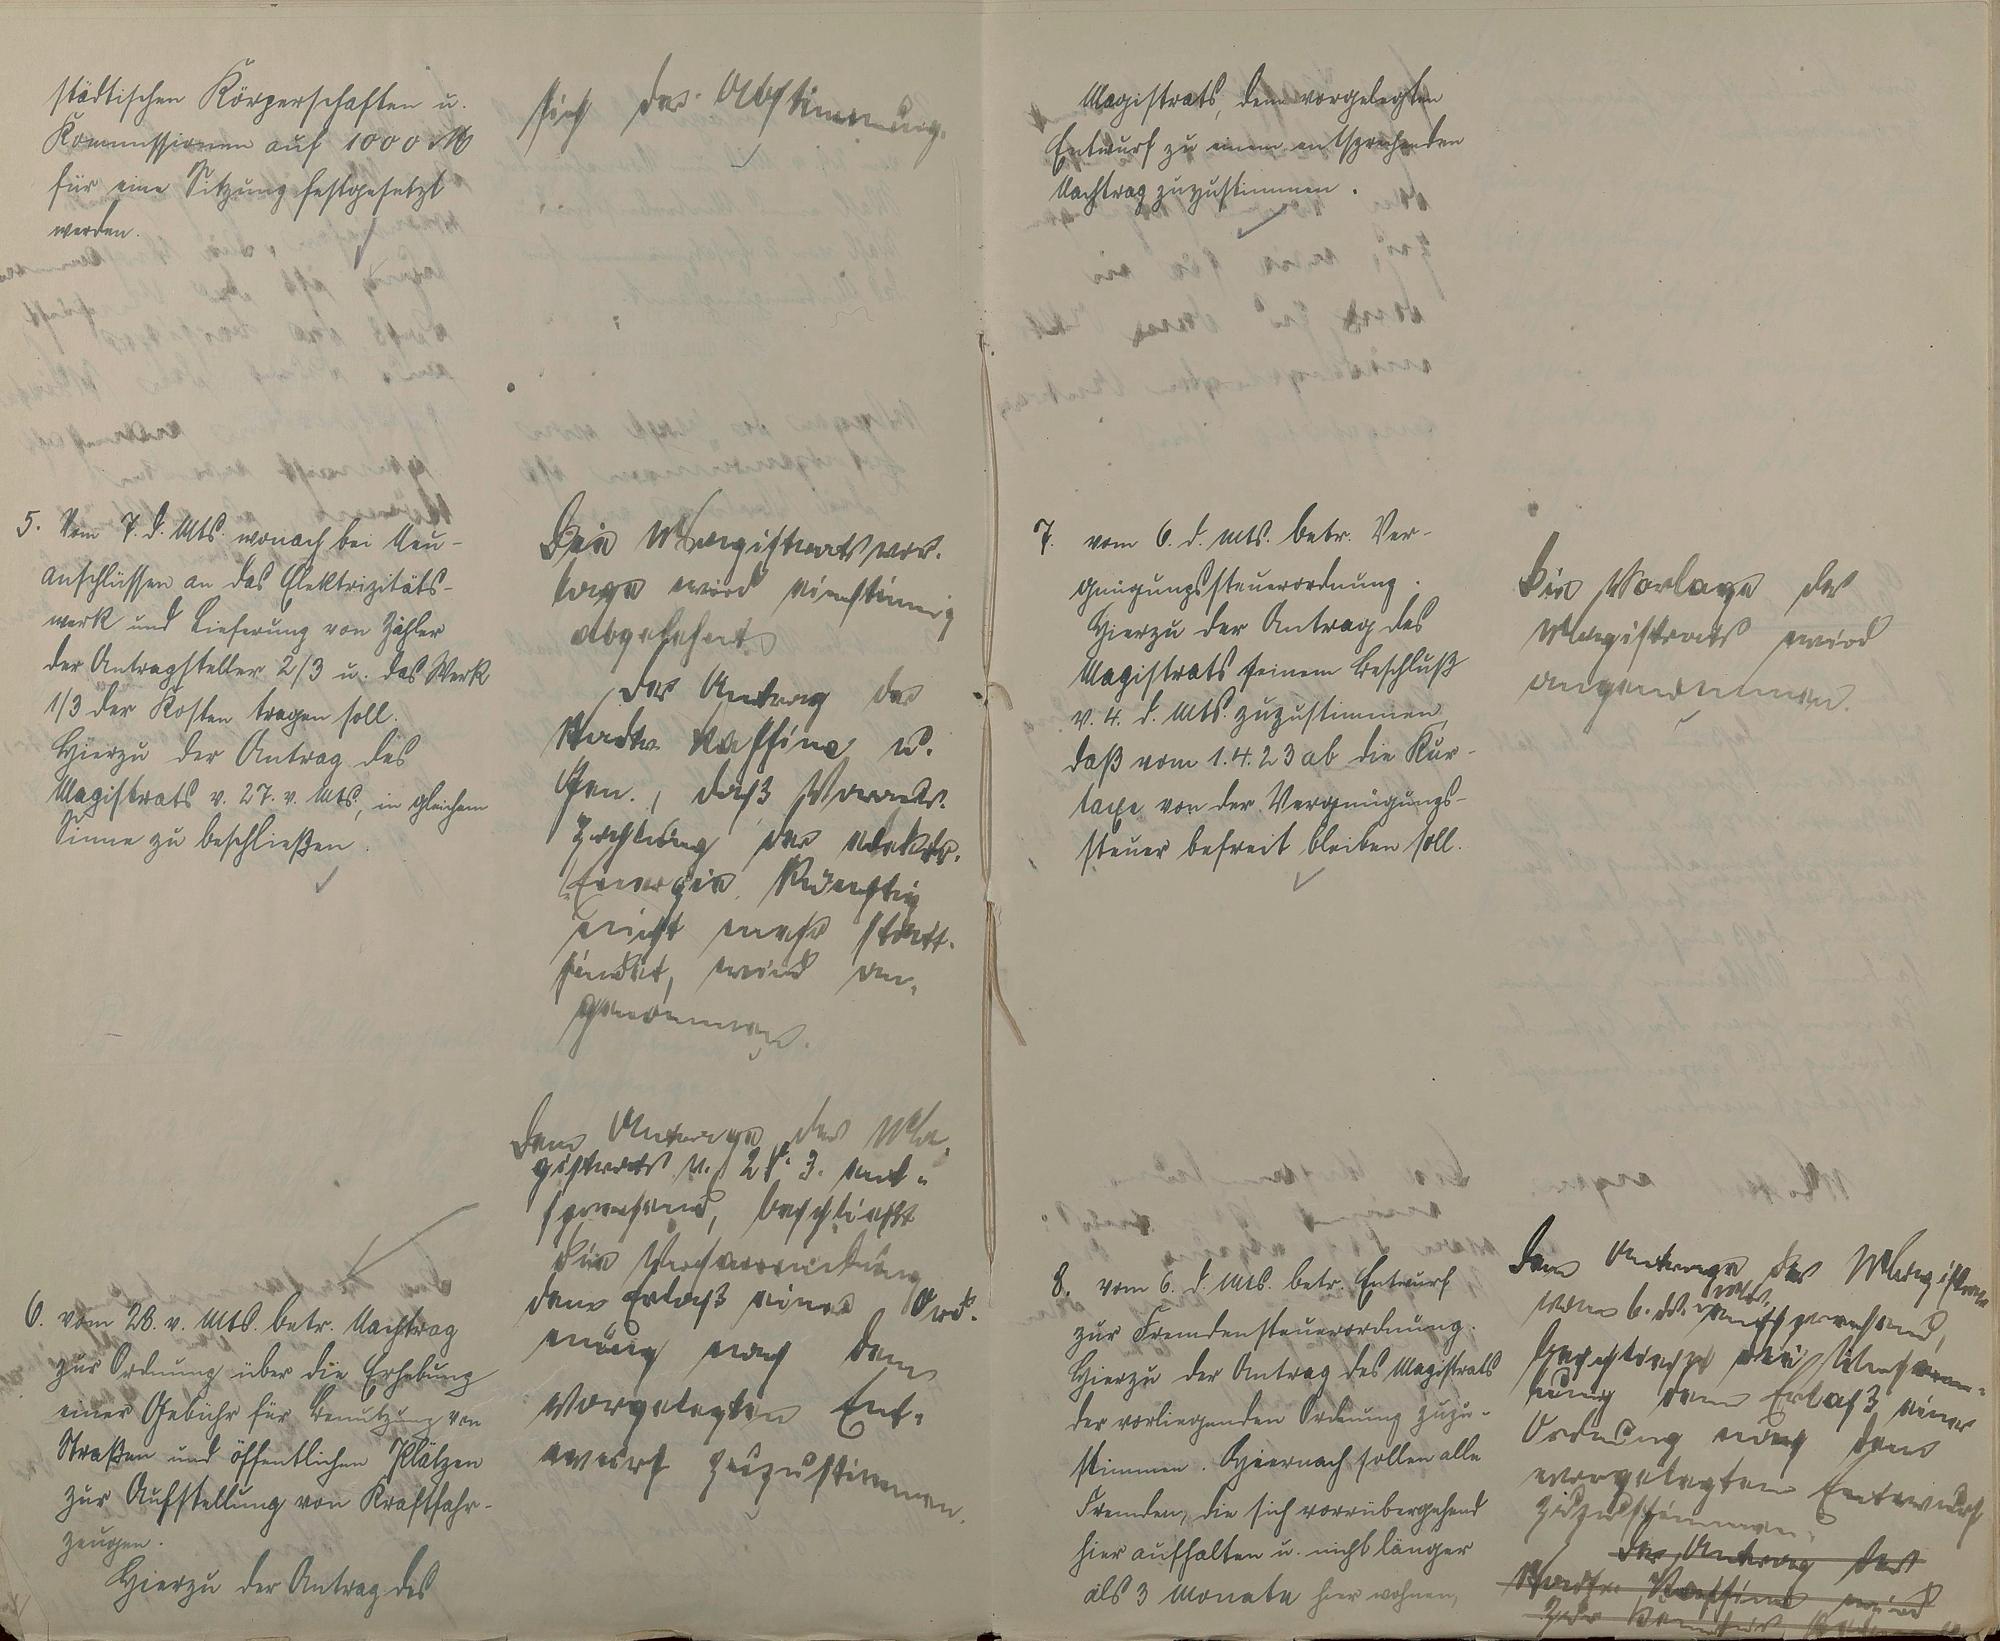 städtischen Körperschaften u.
Kommissionen auf 1000 M
für eine Sitzung festgesetzt
werden.
sich der Abstimmung.
5. Vom 7. d. Mts. wonach bei Neu-
anschlüssen an das Elektrizitäts-
werk und Lieferung von Zähler
der Antragsteller 2/3 u. das Werk
1/3 der Kosten tragen soll.
Hierzu der Antrag des
Magistrats v. 27. v. Mts., in gleichem
Sinne zu beschließen.
Die Magistratsvor-
lage wird einstimmig
abgelehnt.
Der Antrag des
Stadtv. u.
Gen., daß Voraus-
zahlung der elektr.
Energie künftig
nicht mehr statt-
findet, wird an-
genommen.
6. vom 28. v. Mts. betr. Nachtrag
zur Ordnung über die Erhebung
einer Gebühr für Benutzung von
Straßen und öffentlichen Plätzen
zur Aufstellung von Kraftfahr-
zeugen.
Hierzu der Antrag des
Dem Antrage des Ma-
gistrats v. 28. 3. ent-
sprechend, beschließt
die Versammlung
dem Erlaß einer Ord-
nung nach dem
vorgelegten Ent-
wurf zuzustimmen.
Magistrats, dem vorgelegten
Entwurf zu einem entsprechenden
Nachtrag zuzustimmen.
7. vom 6. d. Mts. betr. Ver-
gnügungssteuerordnung.
Hierzu der Antrag des
Magistrats seinem Beschluß
v. 4. d. Mts. zuzustimmen,
daß vom 1.4.23 ab die Kur-
taxe von der Vergnügungs-
steuer befreit bleiben soll.
Die Vorlage des
Magistrats wird
angenommen.
8. vom 6. d. Mts. betr. Entwurf
zur Fremdensteuerordnung.
Hierzu der Antrag des Magistrats
der vorliegenden Ordnung zuzu-
stimmen. Hiernach sollen alle
Fremden, die sich vorrübergehend
hier aufhalten u. nicht länger
als 3 Monate hier wohnen,
Dem Antrage des Magistrats
vom 6. d. Mts. entsprechend,
beschließt die Versamm-
lung dem Erlaß einer
Ordnung nach dem
vorgelegten Entwurf
zuzustimmen.
Der Antrag des
Stadtv. wird
zur